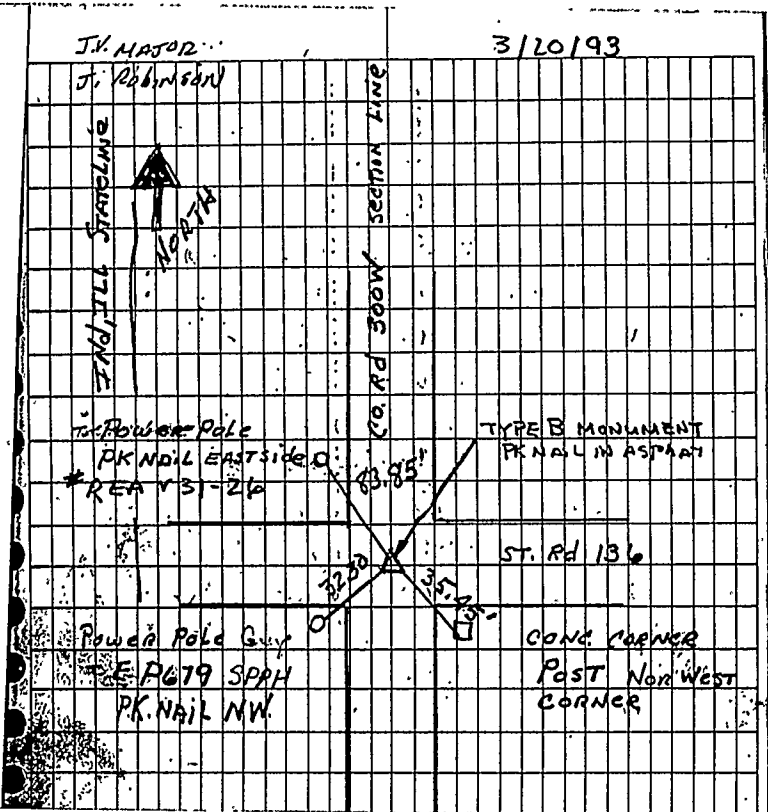 J.V. MAJOR
J. Robinson
3/20/93
Ind, ILL STATELINE
NORTH
CO. Rd 300W Section LINE
Power Pole
PK NAIL EASTSIDE
* REA 31-26
83.85'
TYPE B MONUMENT
PK NAIL IN ASPHALT
ST. Rd 136
35.45'
Power Pole Guy
PK. NAIL NW.
CONC. CORNER
POST NorWest
CORNER